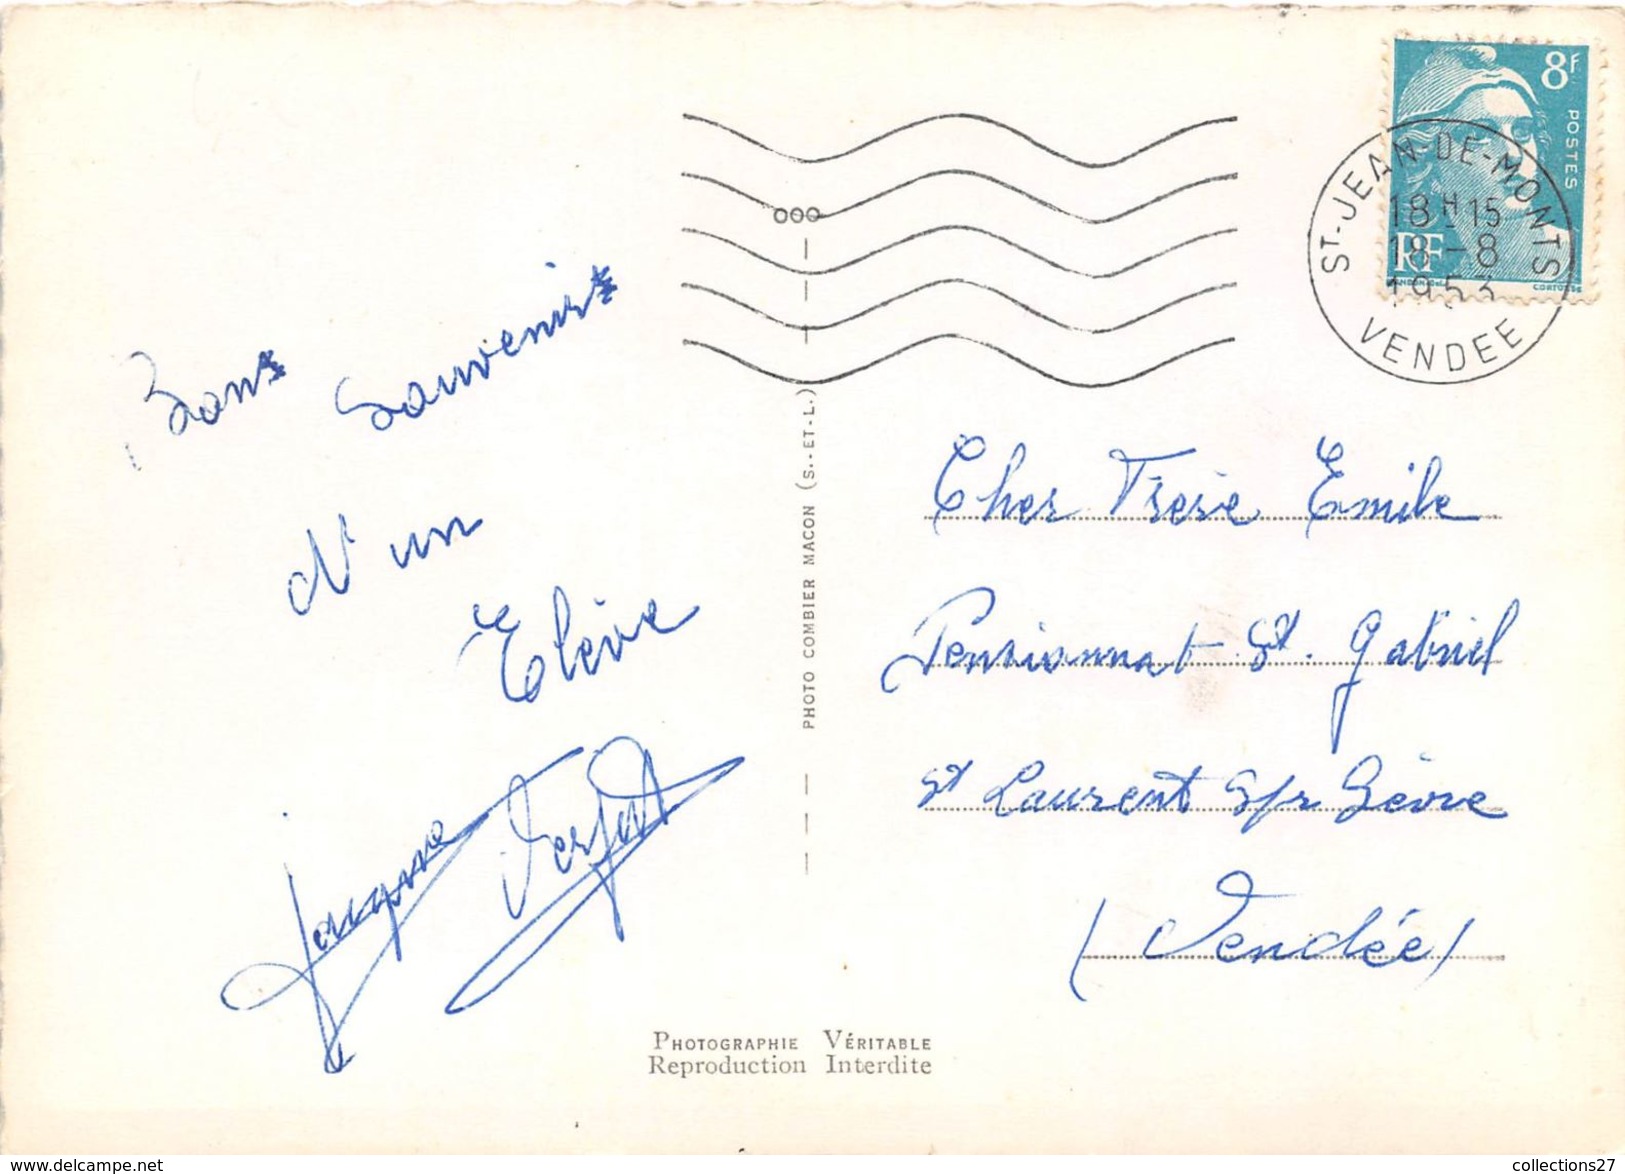 Bons souvenirs
d'un
Elève
Jacques
8F
POSTES
RF
ST-JEAN-DE-MONTS
18H15
18-8
1953
VENDEE
PHOTO COMBIER MACON (S.-ET-L.)
Cher Frère Emile
Pensionnat St. Gabriel
St Laurent s/r Sèvre
(Vendée)
PHOTOGRAPHIE VÉRITABLE
Reproduction Interdite
www.delcampe.net
collections27